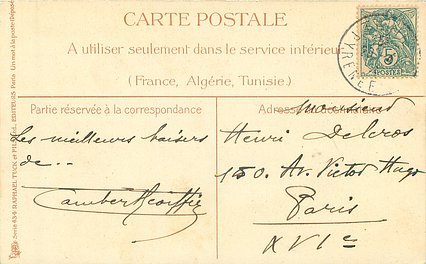 CARTE POSTALE
A utiliser seulement dans le service intérieur
(France, Algérie, Tunisie.)
Partie réservée à la correspondance
Les meilleurs baisers
de..
Monsieur
Henri Delcros
150. Av. Victor Hugo
Paris
XVIe
5
POSTES
Série 454 RAPHAEL TUCK et FILS, EDITEURS, Paris. Un mot à la poste